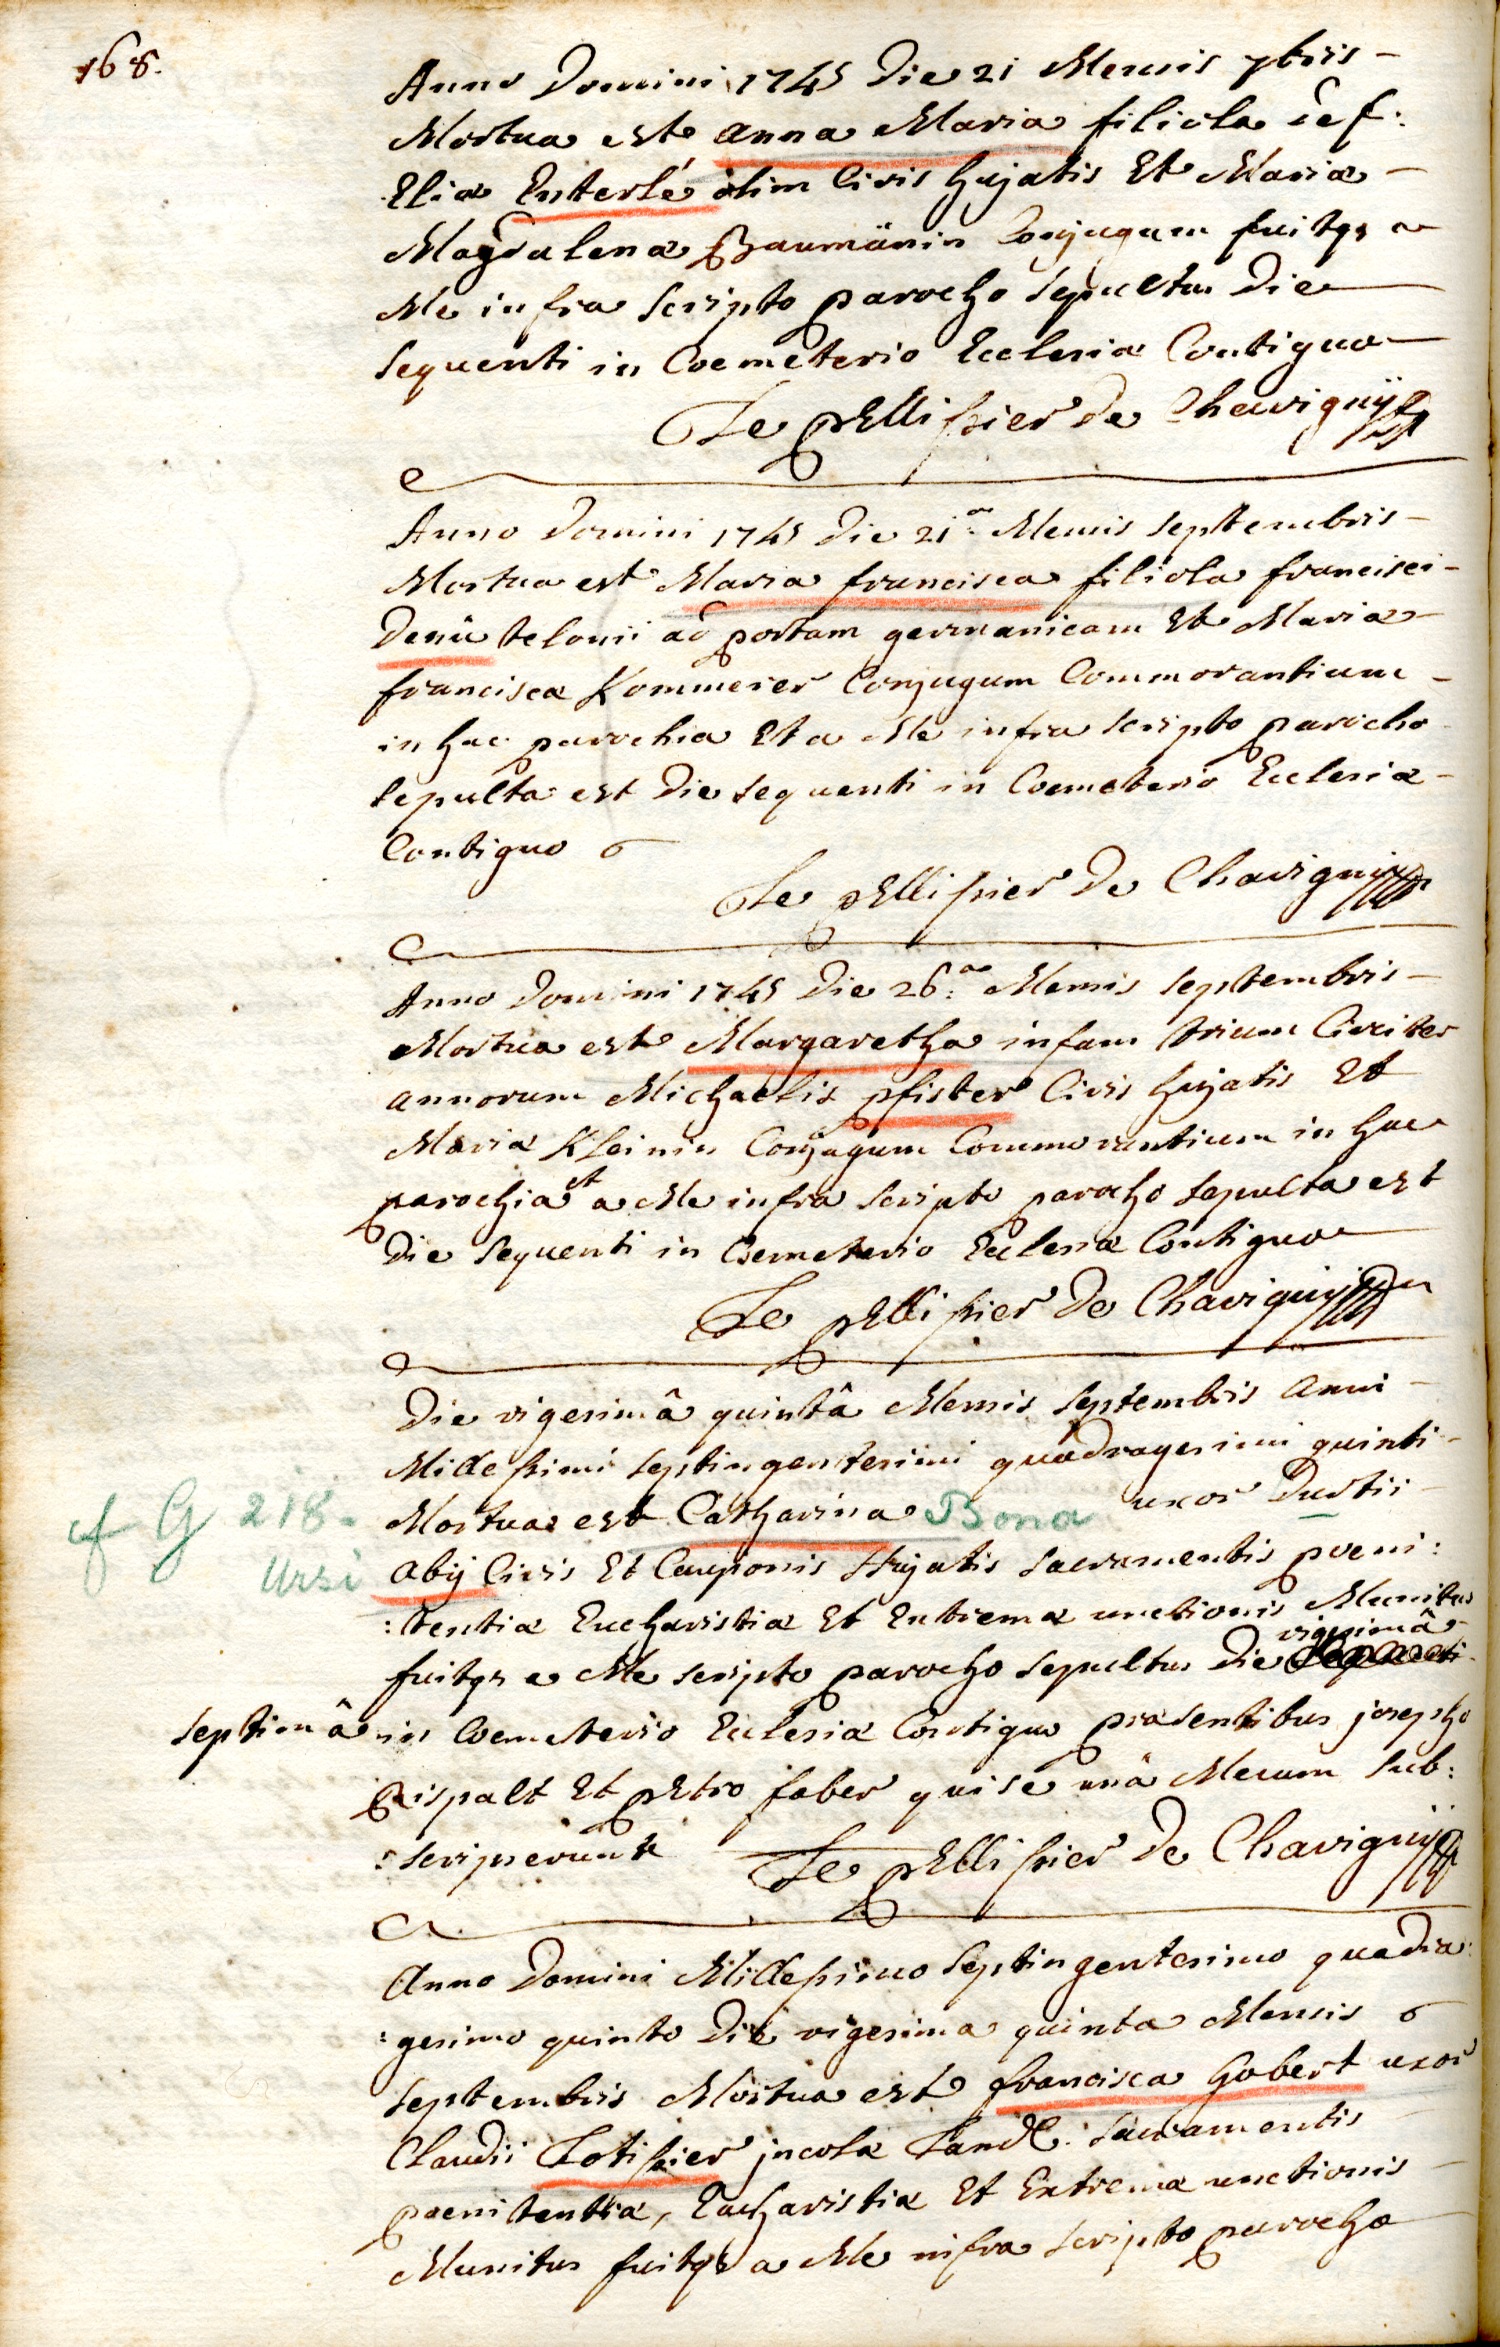 168.
Anno Domini 1745 Die 21 Mensis 7bris -
Mortua est Anna Maria filiola def:
Eliæ Enterlé olim Civis hujatis Et Mariæ -
Magdalenæ Baumänin Conjugum fuitqs a
Me infra scripto parocho sepultus Die
sequenti in Coemeterio Ecclesiæ Contiguo
Le pEllissier de Chavignÿ
Anno Domini 1745 Die 21a Mensis septembris -
Mortua est Maria francisca filiola francisci -
Denü telonii ad portam germanicam Et Mariæ
franciscæ Kommerer Conjugum Commorantium -
in hac parochia Et a Me infra scripto parocho
sepulta est Die sequenti in Coemeterio Ecclesiæ -
Contiguo
Le pEllissier De Chavignÿ
Anno Domini 1745 Die 26a Mensis septembris -
Mortua est Margaretha infans trium Circiter
annorum Michaelis pfister Civis hujatis Et
Mariæ Kleinin Conjugum Commorantium in hac
parochia et a Me infra scripto parocho sepulta est
Die sequenti in Coemeterio Ecclesiæ Contiguo
Le pEllissier De Chavignÿ
Die vigesimâ quintâ Mensis septembris Anni -
Millessimi septingentesimi quadragesimi quinti -
cf G 218. Mortua est Catharina Bona uxor Durtii -
Ursi Abÿ Civis Et Cauponis Hujatis sacramentis poeni:
:tentiæ Eucharistiæ Et Extremæ unctionis Munitus
fuitqs a Me scripto parocho sepultus Die vigesimâ
septimâ in Coemeterio Ecclesiæ Contiguo præsentibus josepho
Rispalt Et pEtro faber qui se unâ Mecum sub:
:scripserunt Le pEllissier De Chavignÿ
Anno Domini Millessimo septingentesimo quadra:
:gesimo quinto Die vigesima quinta Mensis
septembris Mortua est francisca Gobert uxor
Claudii Lotissier jncolæ Land: sacramentis
poenitentiæ, Eucharistiæ Et Extremæ unctionis
Munitus fuitqs a Me infra scripto parocho